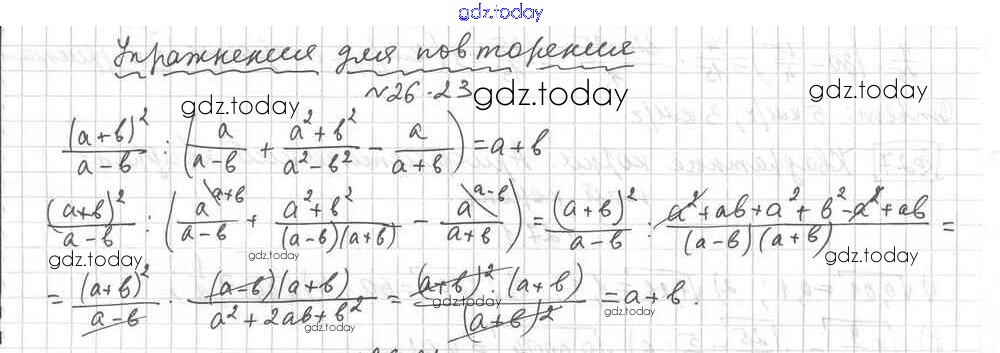 gdz.today
Упражнения для повторения
№26.23 gdz.today gdz.today gdz.today
(a+b)²/(a-b) : (a/(a-b) + (a²+b²)/(a²-b²) - a/(a+b)) = a+b
(a+b)²/(a-b) : (a\a+b/(a-b) + (a²+b²)/((a-b)(a+b)) - a\a-b/(a+b)) = (a+b)²/(a-b) : (a²+ab+a²+b²-a²+ab)/((a-b)(a+b)) =
gdz.today gdz.today gdz.today
= (a+b)²/(a-b) · ((a-b)(a+b))/(a²+2ab+b²) = ((a+b)²·(a+b))/(a+b)² = a+b.
gdz.today gdz.today